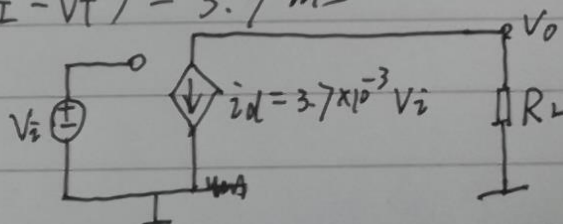 I - VT) = 3.7 m
Vo
Vi
id = 3.7×10⁻³ Vi
RL